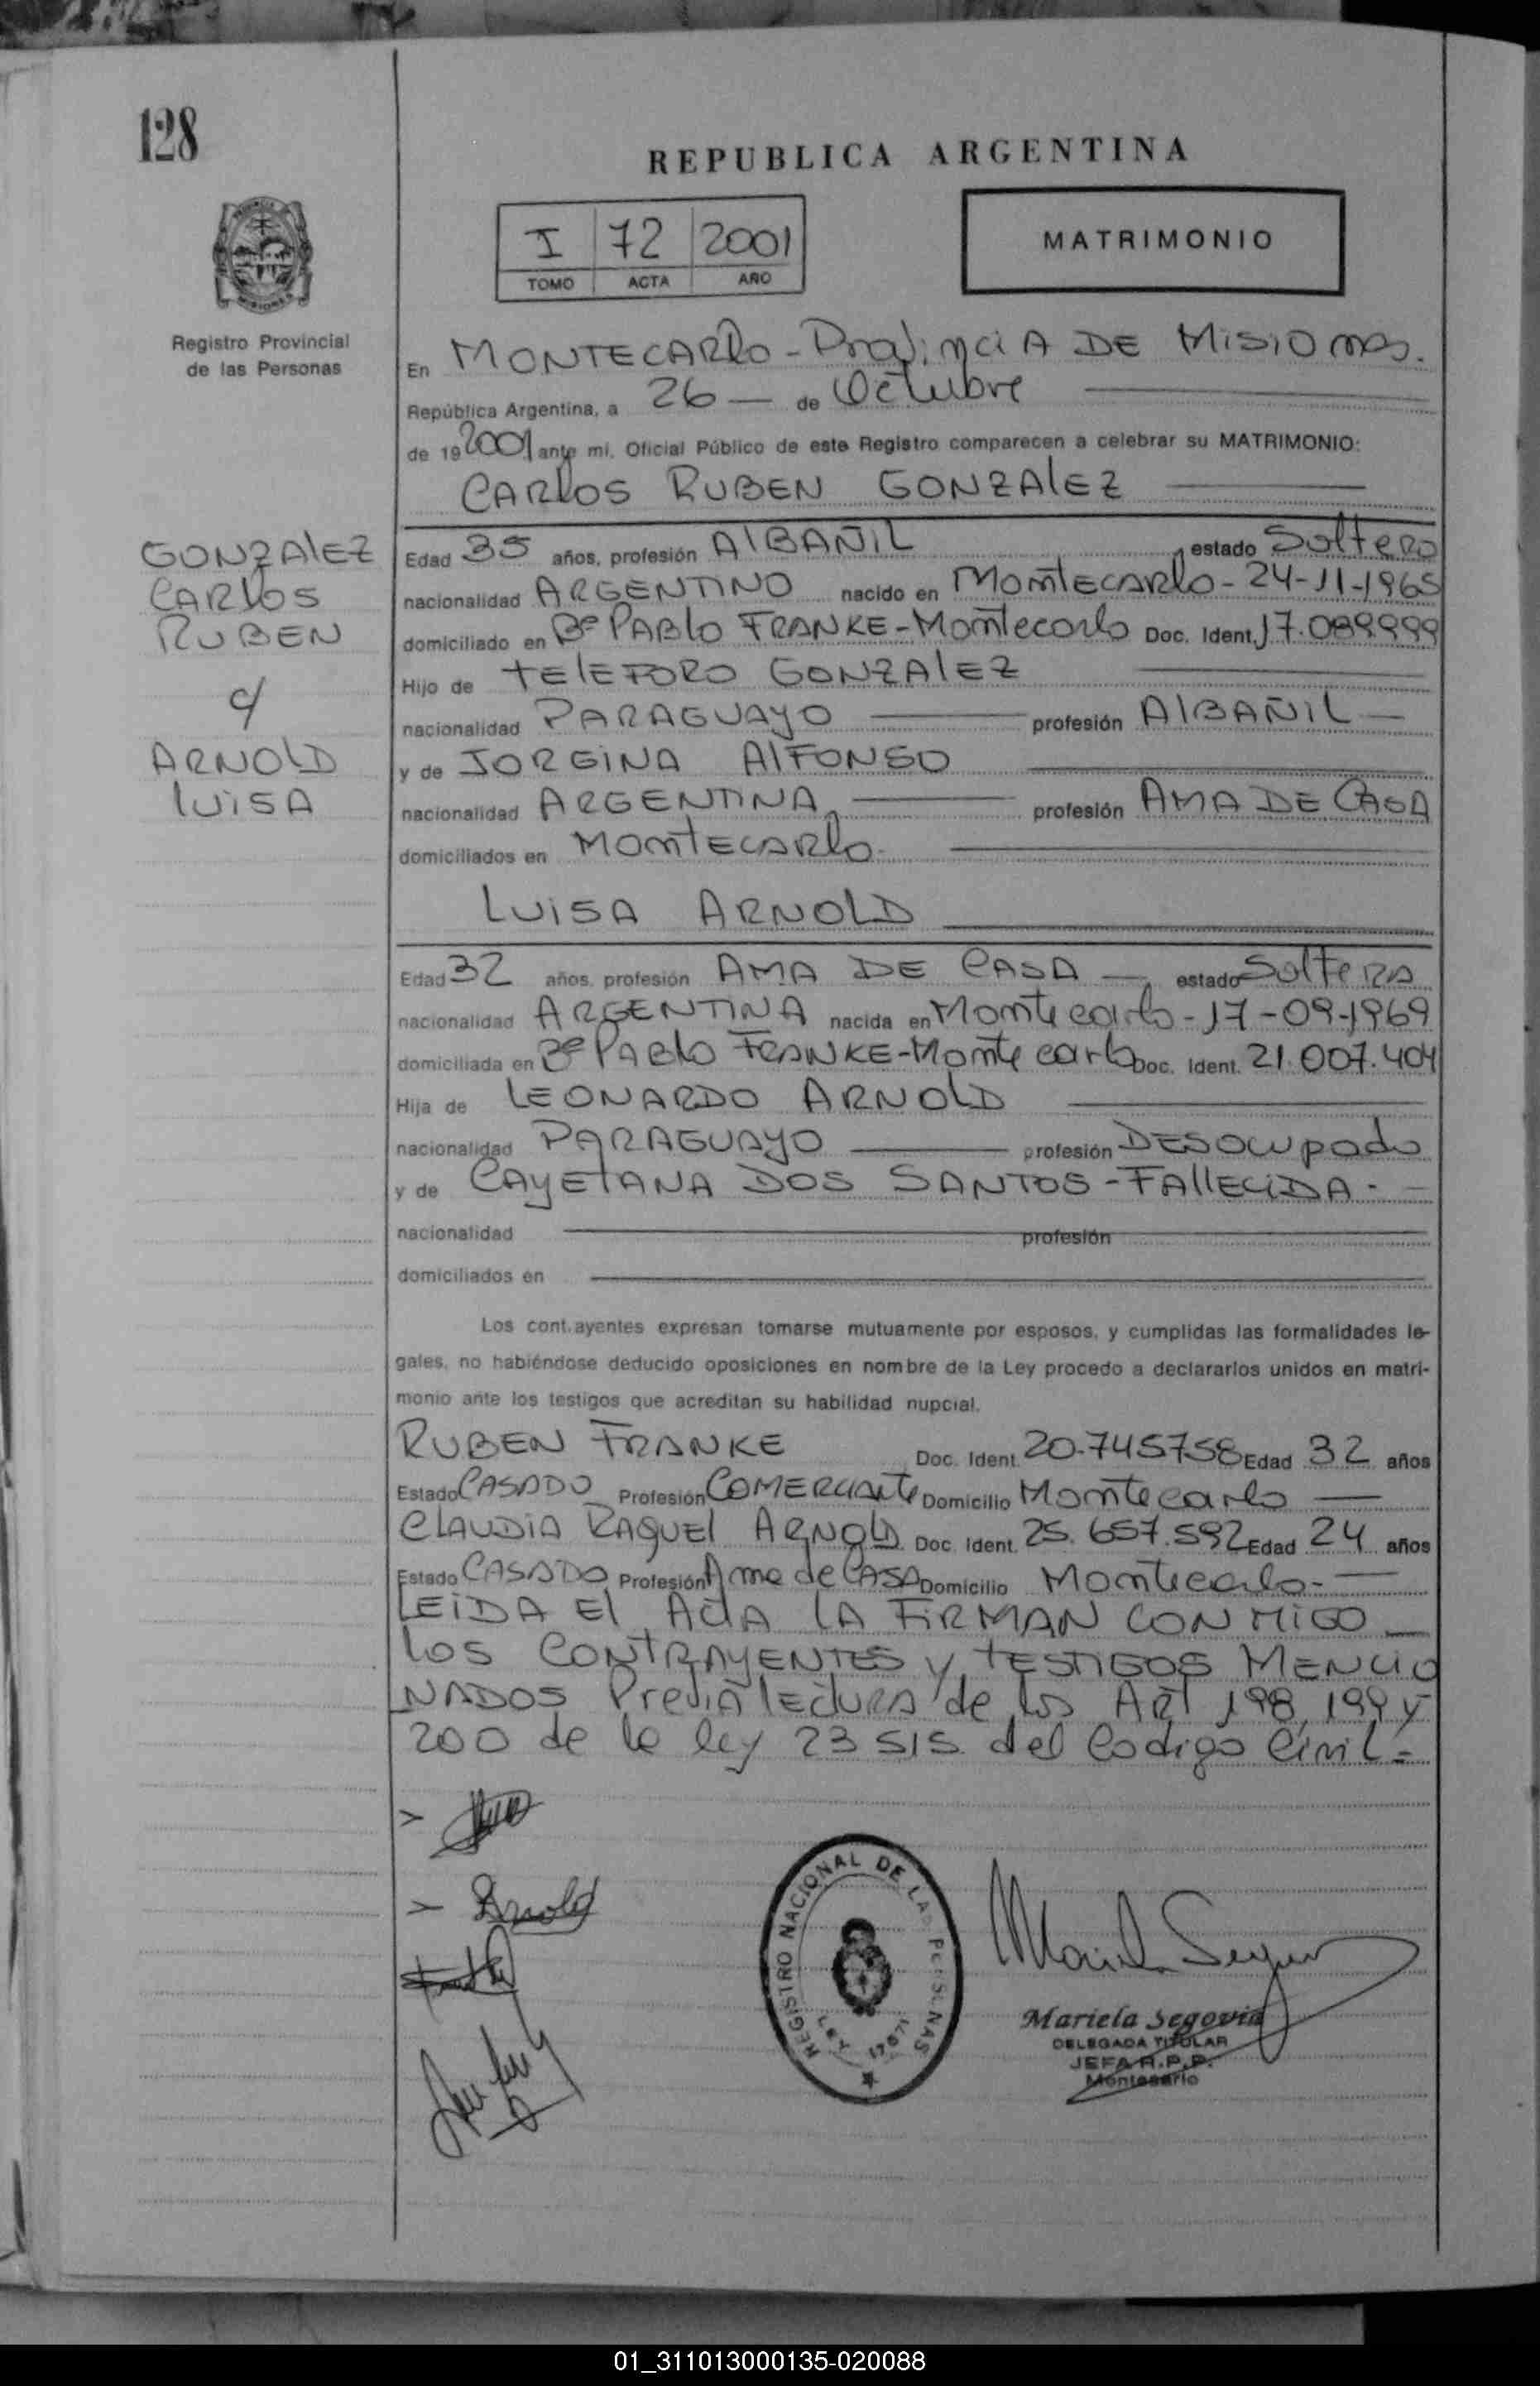 128
REPUBLICA ARGENTINA
I 72 2001
TOMO ACTA AÑO
MATRIMONIO
Registro Provincial
de las Personas
En MONTECARlo - Provincia DE Misiones.
República Argentina, a 26 — de Octubre
de 19 2001 ante mi, Oficial Público de este Registro comparecen a celebrar su MATRIMONIO:
CARlos RUBEN GONZAlEZ
GONZAlEZ
CARlos
RUBEN
c/
ARNOLD
luisA
Edad 35 años, profesión AlBAÑIL estado Soltero
nacionalidad ARGENTINO nacido en MontECARlo - 24-11-1965
domiciliado en Bº PABlo FRANKE - Montecarlo Doc. Ident. 17.089.999
Hijo de TElEFORO GONZAlEZ
nacionalidad PARAGUAYO profesión AlBAÑIL —
y de JORGINA AlFONSO
nacionalidad ARGENTINA, profesión AMA DE CASA
domiciliados en MontECARlo.
LUISA ARNOLD
Edad 32 años, profesión AMA DE CASA — estado SolteRA
nacionalidad ARGENTINA nacida en Montecarlo - 17-09-1969
domiciliada en Bº PABlo FRANKE - Montecarlo Doc. Ident. 21.007.404
Hija de LEONARDO ARNOLD
nacionalidad PARAGUAYO profesión DESOCUpado
y de CAYETANA DOS SANTOS - FAllECIDA. —
nacionalidad profesión
domiciliados en
Los cont.ayentes expresan tomarse mutuamente por esposos, y cumplidas las formalidades le-
gales, no habiéndose deducido oposiciones en nombre de la Ley procedo a declararlos unidos en matri-
monio ante los testigos que acreditan su habilidad nupcial.
RUBEN FRANKE Doc. Ident. 20.745758 Edad 32 años
Estado CASADO Profesión COMERCIAnte Domicilio Montecarlo —
ClAUDIA RAQUEl ARNOLD Doc. Ident. 25.657.592 Edad 24 años
Estado CASADO Profesión Ama de CASA Domicilio Montecarlo. —
LEIDA El ActA lA FIRMAN CONMIGO —
los CONTRAYENTES y TESTIGOS MENCIO
NADOS PreviA lECtURA de los ARt 198, 199 y
200 de la ley 23515 del Codigo Civil -
> 
> Arnold
REGISTRO NACIONAL DE LAS PERSONAS
LEY 17671
Mariela Segovia
DELEGADA TITULAR
JEFA R.P.P.
Montecarlo
01_311013000135-020088